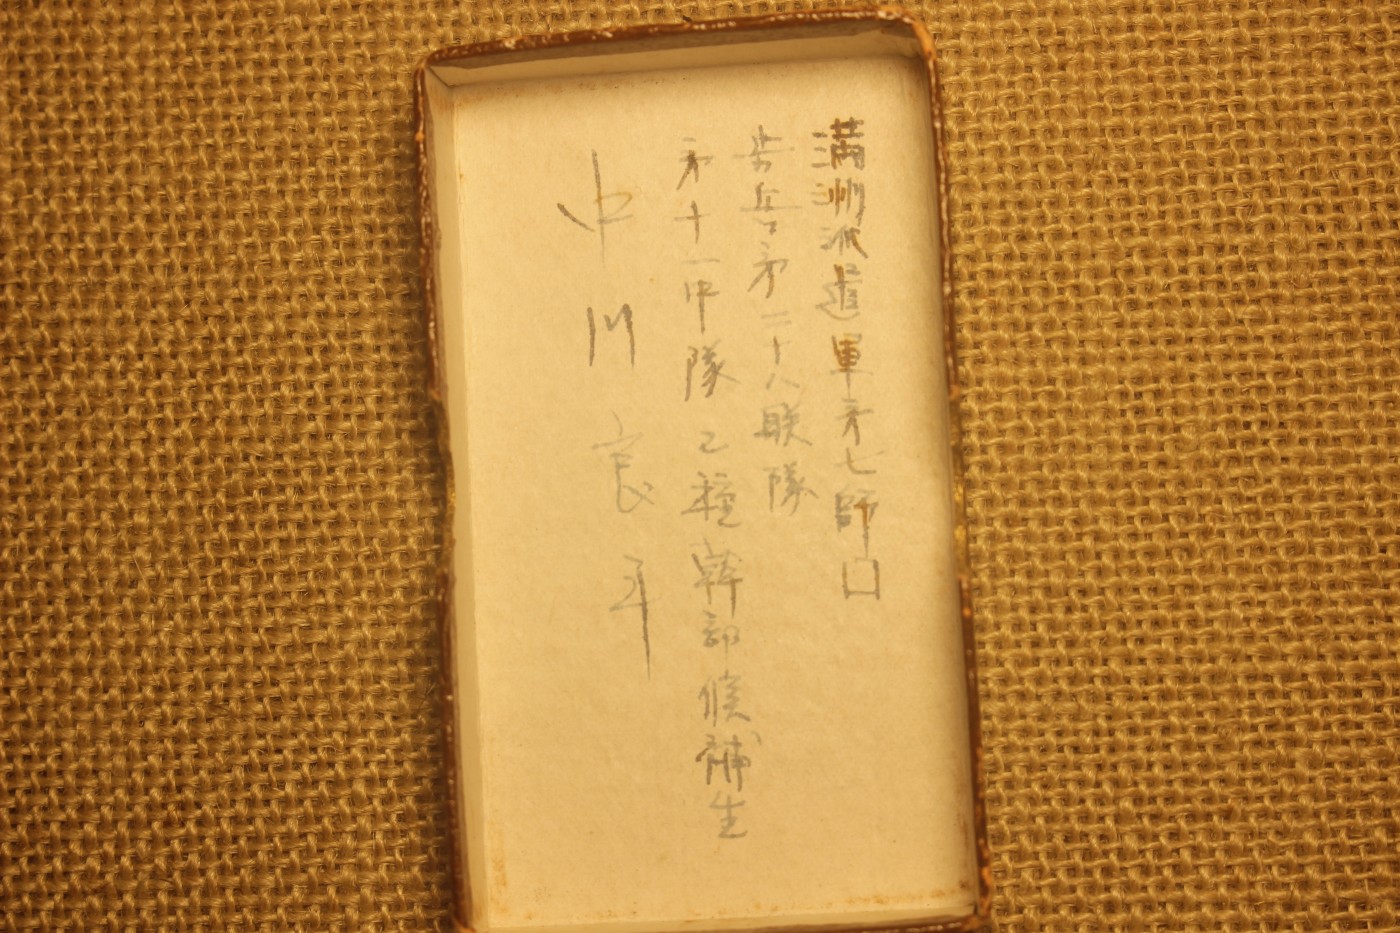 満洲派遣軍第七師口
歩兵第二十八联隊
第十一中隊 乙種幹部候補生
中川良平